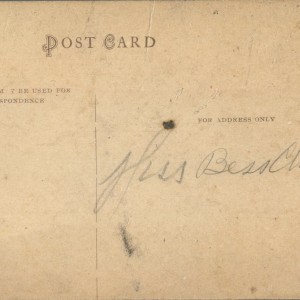 POST CARD
BE USED FOR
SPONDENCE
FOR ADDRESS ONLY
Miss Bess